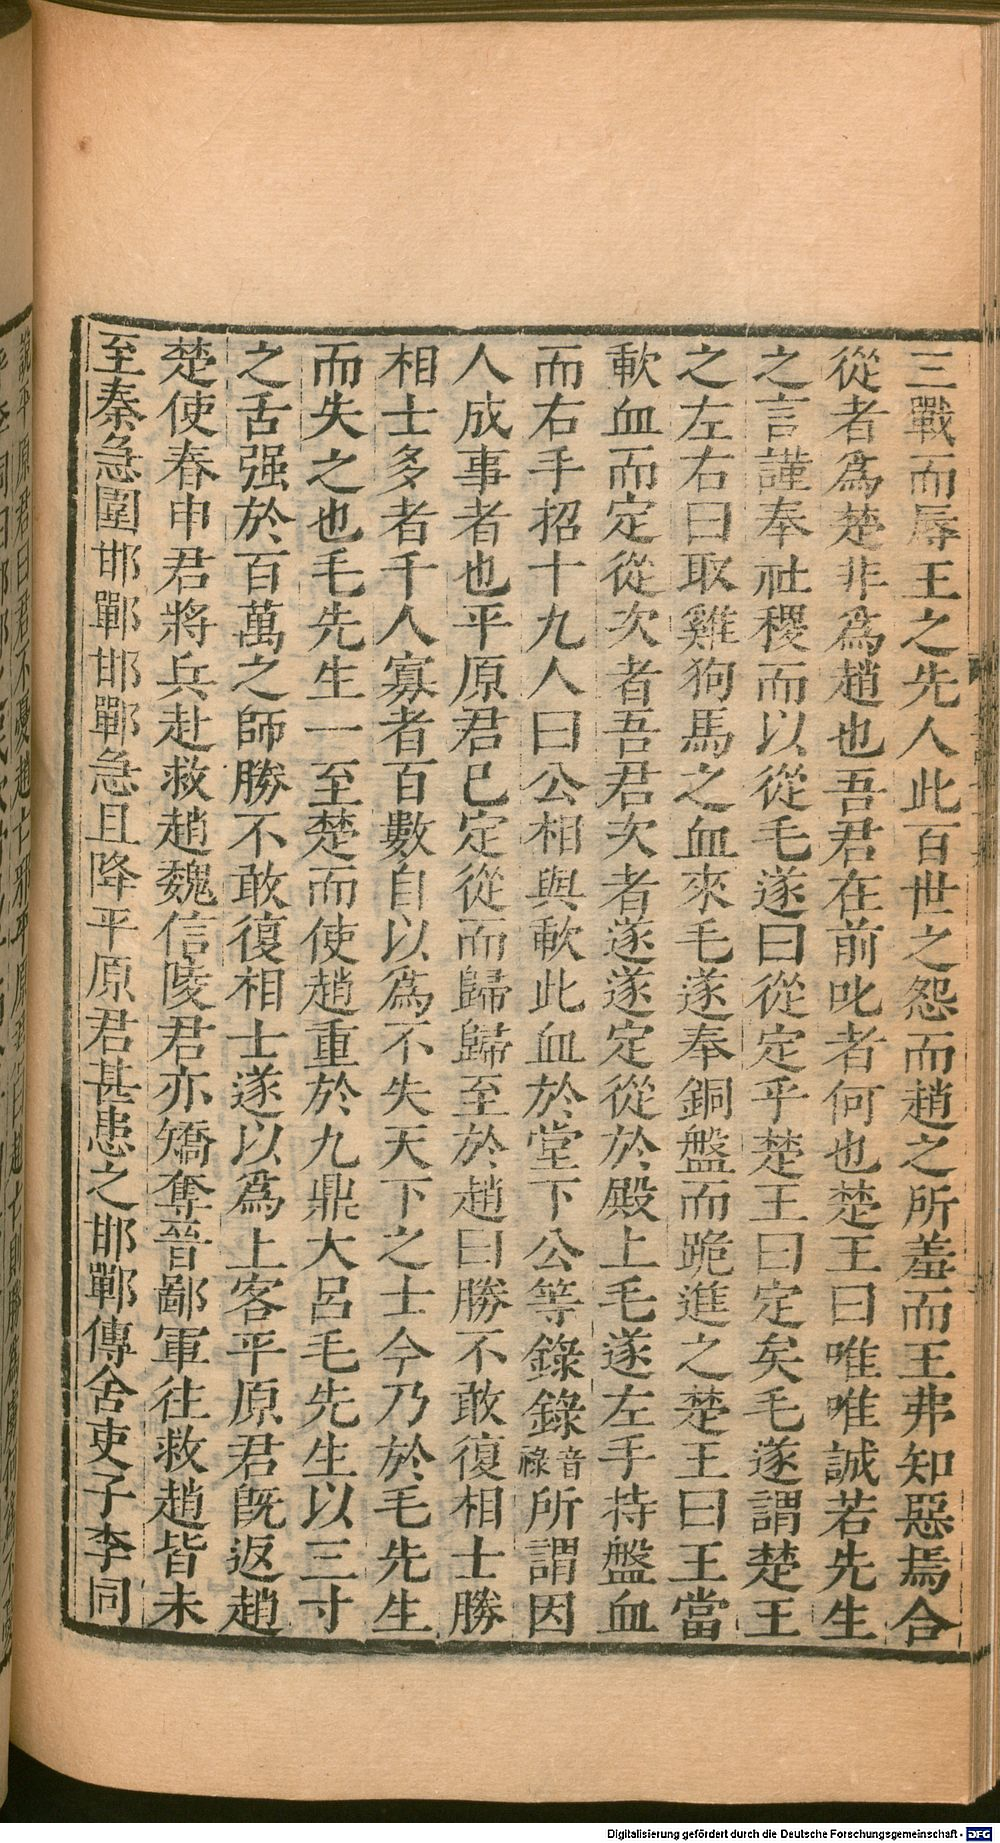 三戰而辱王之先人此百世之怨而趙之所羞而王弗知惡焉合
從者爲楚非爲趙也吾君在前叱者何也楚王曰唯唯誠若先生
之言謹奉社稷而以從毛遂曰從定乎楚王曰定矣毛遂謂楚王
之左右曰取雞狗馬之血來毛遂奉銅盤而跪進之楚王曰王當
歃血而定從次者吾君次者遂遂定從於殿上毛遂左手持盤血
而右手招十九人曰公相與歃此血於堂下公等錄錄音祿所謂因
人成事者也平原君已定從而歸歸至於趙曰勝不敢復相士勝
相士多者千人寡者百數自以爲不失天下之士今乃於毛先生
而失之也毛先生一至楚而使趙重於九鼎大呂毛先生以三寸
之舌强於百萬之師勝不敢復相士遂以爲上客平原君旣返趙
楚使春申君將兵赴救趙魏信陵君亦矯奪晉鄙軍往救趙皆未
至秦急圍邯鄲邯鄲急且降平原君甚患之邯鄲傳舍吏子李同
說平原君曰君不憂趙亡邪平原君曰趙亡則勝爲虜何爲不憂
Digitalisierung gefördert durch die Deutsche Forschungsgemeinschaft - DFG